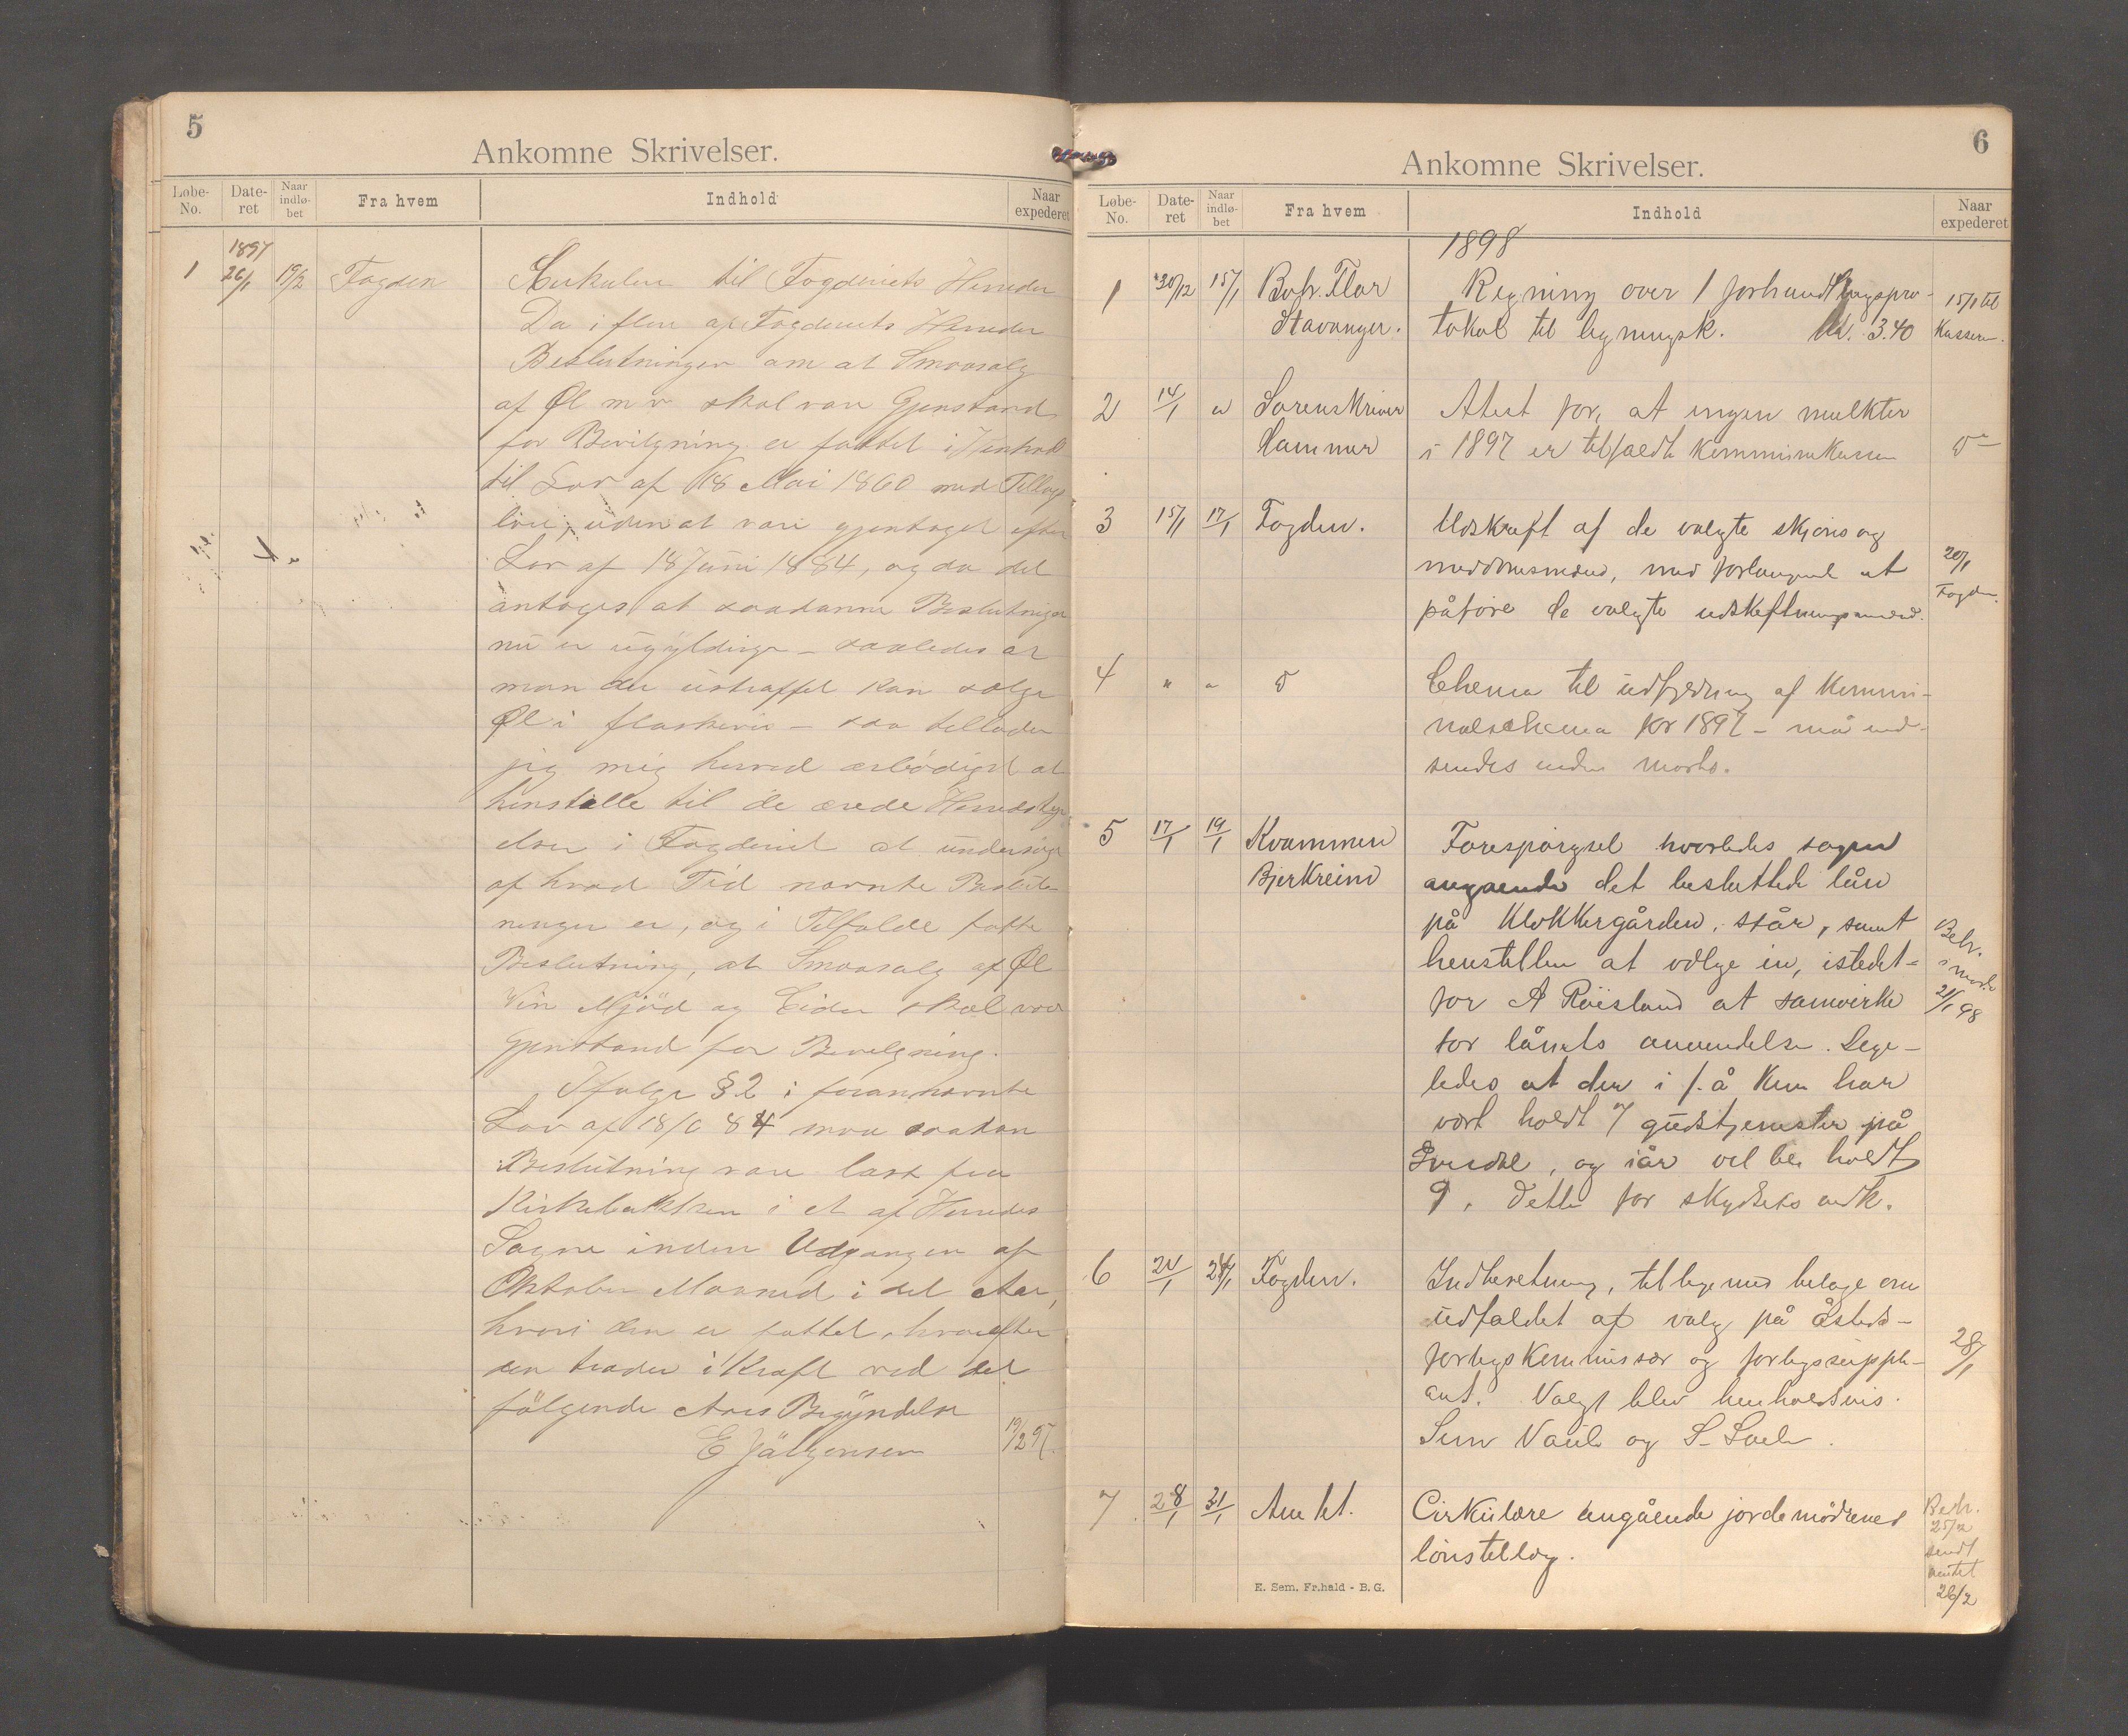 5
Ankomne Skrivelser.
Løbe-No. Dateret Naar indløbet Fra hvem Indhold Naar expederet
1897
1 26/1 19/2 Fogden Cirkulær til Fogderiets Herreder
Da i flere af Fogderiets Herreder
Beslutningen om at Smaasalg
af Øl m v skal være Gjenstand
for Bevilgning er fattet i Henhold
til Lov af 18 Mai 1860 med Tillægs
love, uden at være gjentaget efter
Lov af 18 Juni 1884, og da det
antages at saadanne Beslutninger
nu er ugyldige – saaledes at
man der ustraffet kan sælge
Øl i flaskevis – saa tillader
jeg mig herved ærbödigst at
henstille til de ærede Herredsstyr
elser i Fogderiet at undersöge
af hvad Tid nævnte Beslut-
ninger er, og i Tilfælde fatte
Beslutning, at Smaasalg af Øl
Vin Mjöd og Cider skal være
Gjenstand for Bevilgning.
Ifølge § 2 i forannævnte
Lov af 18/6 84 maa saadan
Beslutning være læst fra
Kirkebakken i et af Herredes
Sogne inden Udgangen af
Oktober Maaned i det Aar,
hvori den er fattet, hvorefter
den træder i Kraft ved det
fölgende Aars Begyndelse
E Jälgensen 19/2 97.
6
Ankomne Skrivelser.
Løbe-No. Dateret Naar indlø-bet Fra hvem Indhold Naar expederet
1898
1 30/12 15/1 Boh. Flor Regning over 1 forhandlingspro- 15/1 til
Stavanger. tokol til ligningsk. Kr. 3.40 Kasserer.
2 14/1 " Sorenskriver Atest for, at ingen mulkter
Hammer i 1897 er tilfaldt kommunekassen do
3 15/1 17/1 Fogden. Udskrift af de valgte skjöns og
meddomsmænd, med forlangende at 20/1
påföre de valgte udskiftningsmænd. Fogden.
4 " " do Schema til udfyldning af kommu-
nalschema for 1897 – må ind-
sendes inden marts.
5 17/1 19/1 Kvammen Forespörgsel hvorledes sagen
Bjerkreim angaaende det besluttede lån
på Klokkergården, står, samt Beh.
henstillen at vælge en, istedet- i møde
for A Röisland at samvirke 21/1 98
for lånets anvendelse. Lige-
ledes at der i f. å kun har
vært holdt 7 gudstjenester på
Ivesdal, og iår vil bli holdt
9. Dette for skydsens vedk.
6 24/1 28/1 Fogden. Indberetning, tilligemed belage om
udfaldet af valg på åsteds-
forligskommissær og forligssupple- 28/1
ant. Valgt blev henholdsvis.
Sven Vaule og S. Sæle.
7 28/1 31/1 Amtet. Cirkulære angående jordemödrenes Beh.
lönstillæg. 25/2
sendt
amtet
26/2
E. Sem, Fr.hald - B.G.